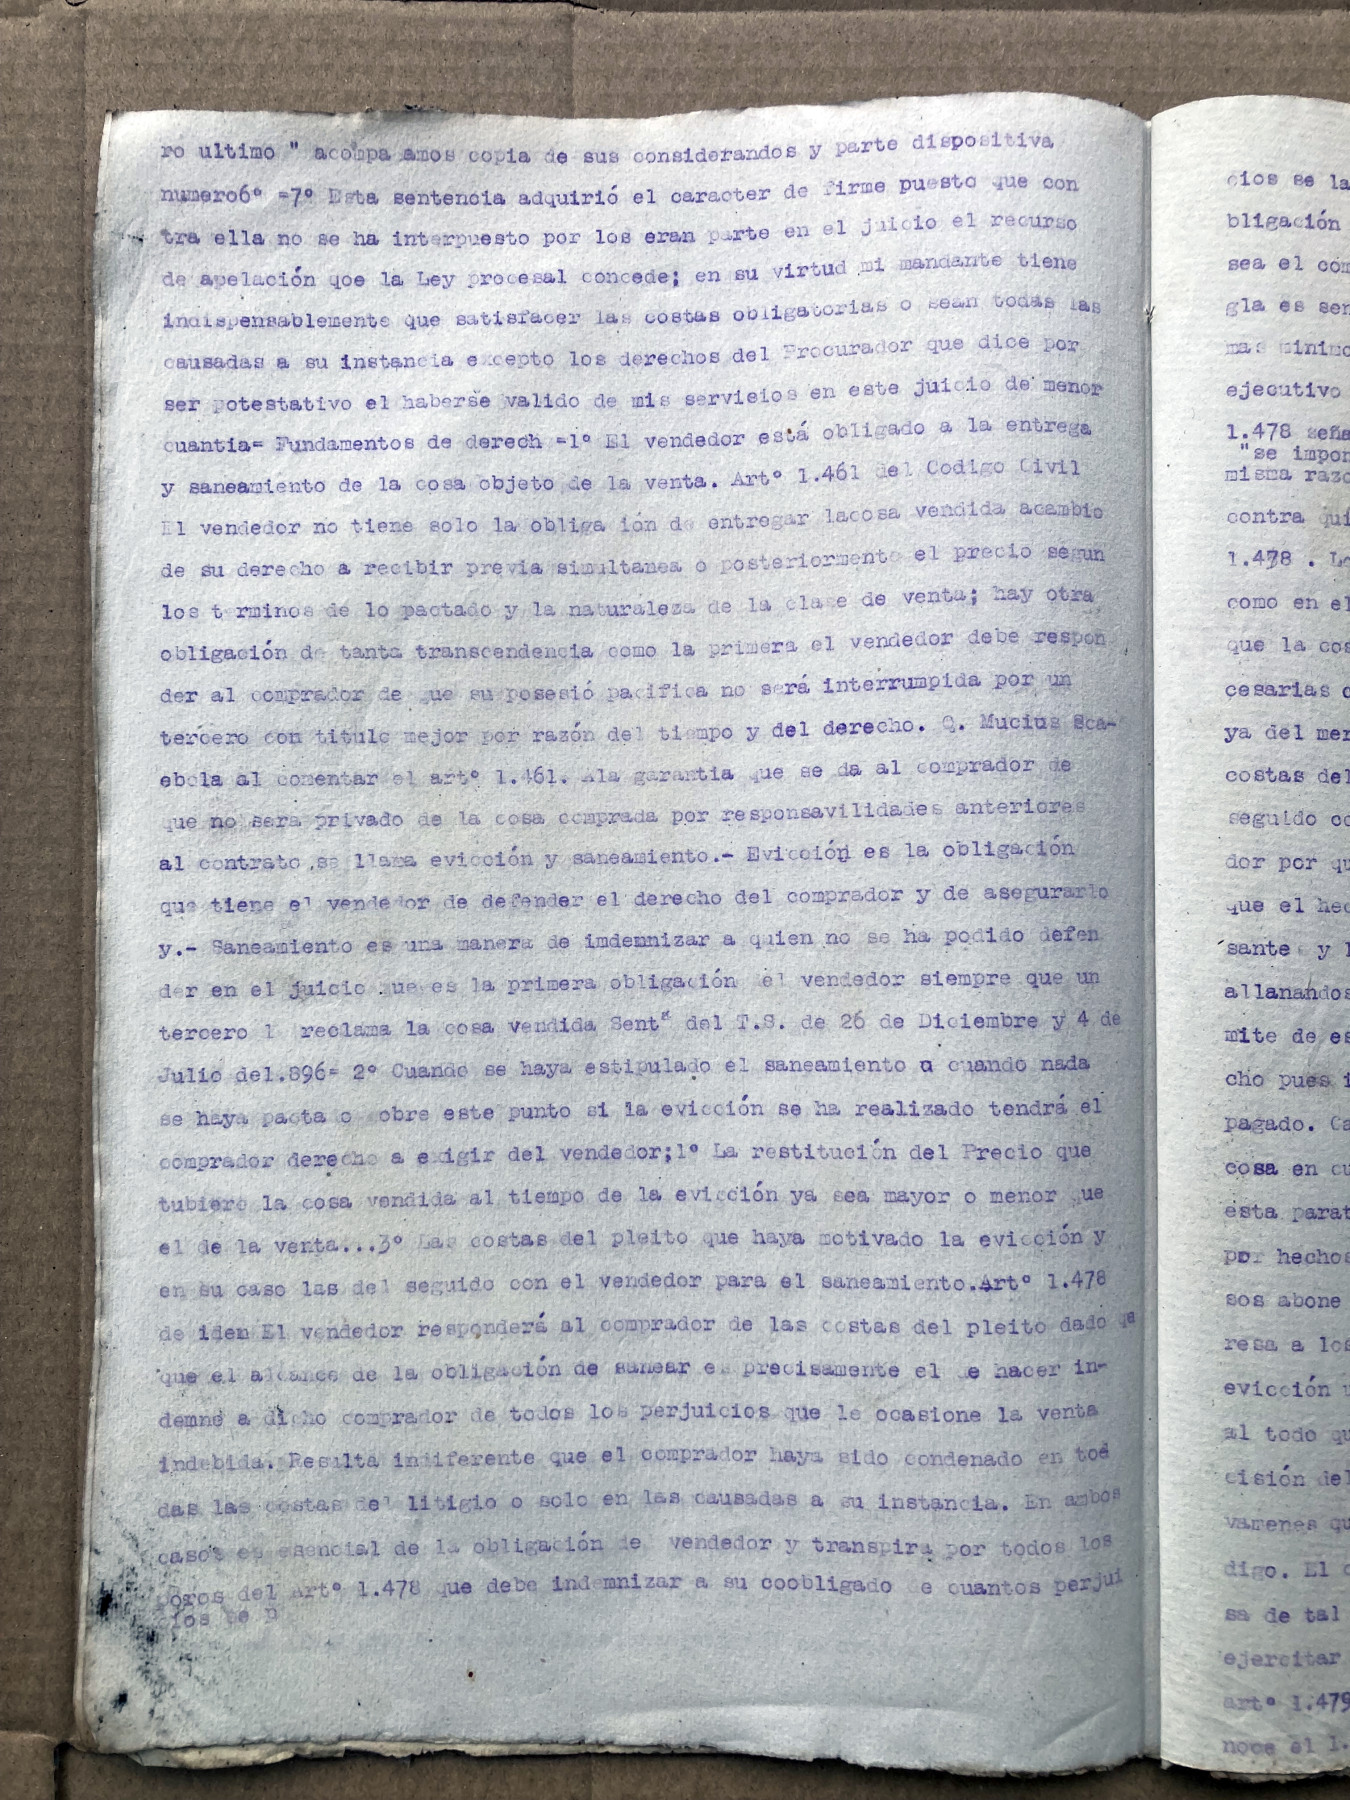 ro ultimo " acompa amos copia de sus considerandos y parte dispositiva
numero6º =7º Esta sentencia adquirió el caracter de firme puesto que con
tra ella no se ha interpuesto por los eran parte en el juicio el recurso
de apelación qoe la Ley procesal concede; en su virtud mi mandante tiene
indispensablemente que satisfacer las costas obligatorias o sean todas las
causadas a su instancia excepto los derechos del Procurador que dice por
ser potestativo el haberse valido de mis servicios en este juicio de menor
cuantia= Fundamentos de derech =1º El vendedor está obligado a la entrega
y saneamiento de la cosa objeto de la venta. Artº 1.461 del Codigo Civil
El vendedor no tiene solo la obliga ión de entregar lacosa vendida acambio
de su derecho a recibir previa simultanea o posteriormente el precio segun
los t rminos de lo pactado y la naturaleza de la clase de venta; hay otra
obligación de tanta transcendencia como la primera el vendedor debe respon
der al comprador de que su posesió pacifica no será interrumpida por un
tercero con titulo mejor por razón del tiempo y del derecho. Q. Mucius Sca-
ebola al comentar el artº 1.461. Ala garantia que se da al comprador de
que no sera privado de la cosa comprada por responsavilidades anteriores
al contrato se llama evicción y saneamiento.- Evicción es la obligación
que tiene el vendedor de defender el derecho del comprador y de asegurarlo
y.- Saneamiento es una manera de imdemnizar a quien no se ha podido defen
der en el juicio que es la primera obligación el vendedor siempre que un
tercero l reclama la cosa vendida Sentª del T.S. de 26 de Diciembre y 4 de
Julio de1.896= 2º Cuando se haya estipulado el saneamiento o cuando nada
se haya pacta o obre este punto si la evicción se ha realizado tendrá el
comprador derecho a exigir del vendedor;1º La restitución del Precio que
tubiere la cosa vendida al tiempo de la evicción ya sea mayor o menor que
el de la venta...3º Las costas del pleito que haya motivado la evicción y
en su caso las del seguido con el vendedor para el saneamiento.Artº 1.478
de iden El vendedor responderá al comprador de las costas del pleito dado qe
que el alcance de la obligación de sanear es precisamente el e hacer in-
demne a dicho comprador de todos los perjuicios que le ocasione la venta
indebida. Resulta indiferente que el comprador haya sido condenado en toé
das las costas del litigio o solo en las causadas a su instancia. En ambos
casos es esencial de la obligación de vendedor y transpira por todos los
poros del Artº 1.478 que debe indemnizar a su coobligado e cuantos perjui
cios se p
cios se la
bligación
sea el com
gla es sen
mas minimo
ejecutivo
1.478 seña
"se impon
misma razo
contra qui
1.478 . Lo
como en el
que la cos
cesarias o
ya del mer
costas del
seguido co
dor por qu
que el hec
sante y l
allanandos
mite de es
cho pues i
pagado. Ca
cosa en cu
esta parat
por hechos
sos abone
resa a los
evicción u
al todo qu
cisión del
vamenes qu
digo. El c
sa de tal
ejercitar
artº 1.479
noce el 1.